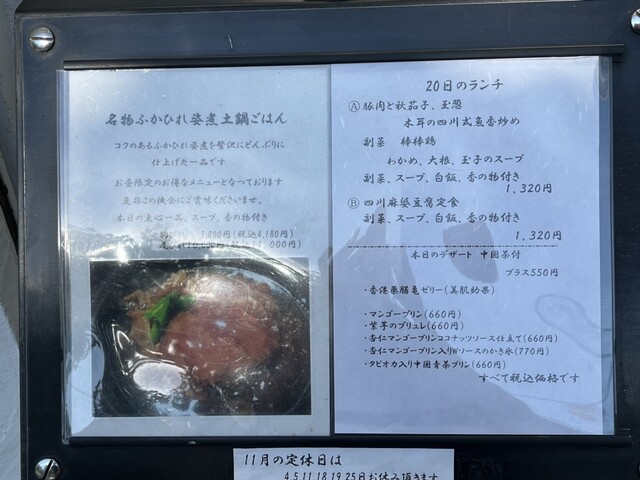 名物ふかひれ姿煮土鍋ごはん
コクのあるふかひれ姿煮を贅沢にどんぶりに
仕上げた一品です
お昼限定のお得なメニューとなっております
是非この機会にご賞味くださいませ。
本日の点心一品、スープ、香の物付き
3,800円(税込4,180円)
10,000円(税込11,000円)
20日のランチ
Ⓐ 豚肉と秋茄子、玉葱
木耳の四川式魚香炒め
副菜 棒棒鶏
わかめ、大根、玉子のスープ
副菜、スープ、白飯、香の物付き
1,320円
Ⓑ 四川麻婆豆腐定食
副菜、スープ、白飯、香の物付き
1,320円
本日のデザート 中国茶付
プラス550円
・香港薬膳亀ゼリー(美肌効果)
・マンゴープリン(660円)
・紫芋のブリュレ(660円)
・杏仁マンゴープリンココナッツソース仕立て(660円)
・杏仁マンゴープリン入りWソースのかき氷(770円)
・タピオカ入り中国青茶プリン(660円)
すべて税込価格です
11月の定休日は
4,5,11,18,19,25日お休み頂きます